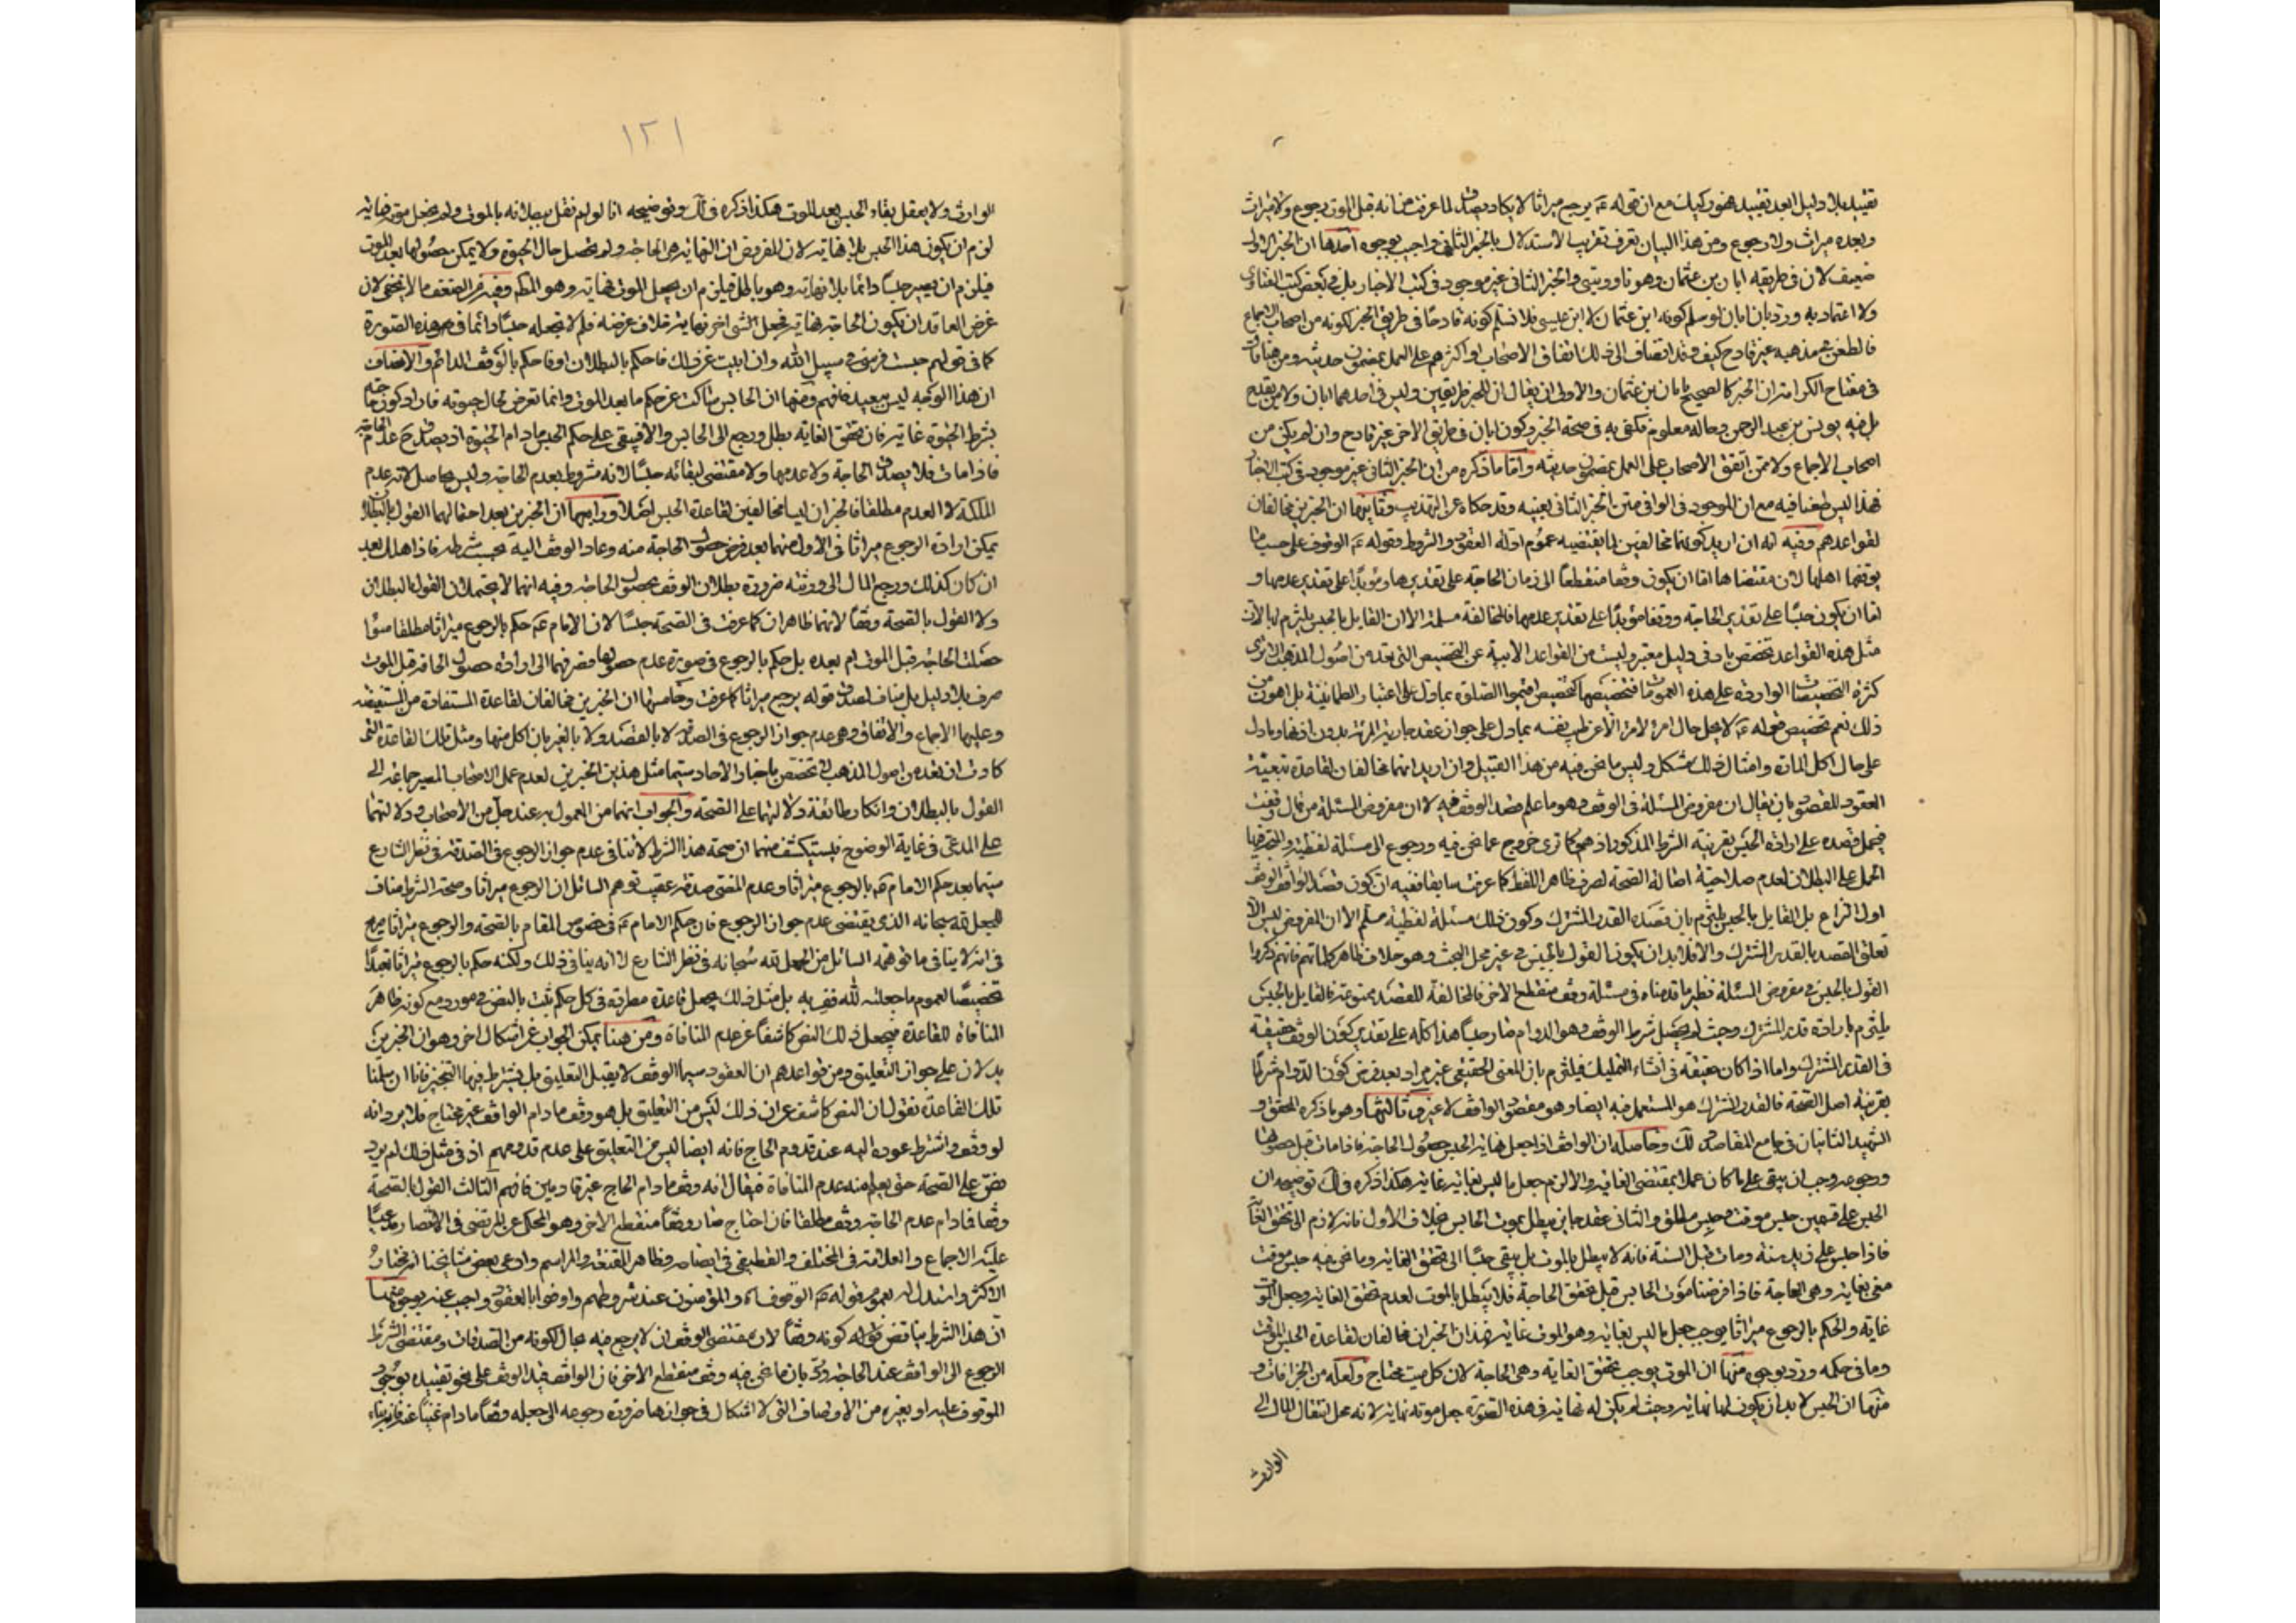 تقييد بلا دليل ابعد تقييد هنوز كيك مع ان قوله ع يرجع ميراثا لا يكاد يصدق لما عرفت من انه قبل الموت رجوع ولا ميراث
وبعده ميراث ولا رجوع ومن هذا البيان تعرف تقريب الاستدلال بالخبر الثاني واجيب بوجوه احدها ان الخبر الاول
ضعيف لان في طريقه ابان بن عثمان وهو ناووسي والخبر الثاني غير موجود في كتب الاخبار بل في بعض كتب الفتاوى
ولا اعتماد به ورد بان ابان لو سلم كونه ابن عثمان لا ابن عيسى فلا نسلم كونه قادحا في طريق الخبر لكونه من اصحاب الاجماع
فالطعن بمذهبه غير قادح كيف وقد انضاف الى ذلك اتفاق الاصحاب او اكثرهم على العمل بمضمون حديثه ومن هنا قال
في مفتاح الكرامة ان الخبر كالصحيح بابان بن عثمان والاولى ان يقال ان للخبر طريقين وليس في احدهما ابان ولا من يقدح
بل فيه يونس بن عبد الرحمن وحاله معلوم فكفى به في صحة الخبر وكون ابان في طريق الاخر غير قادح وان لم يكن من
اصحاب الاجماع ولا ممن اتفق الاصحاب على العمل بمضمون حديثه واما ما ذكره من ان الخبر الثاني غير موجود في كتب الاخبار
فهذا ليس طعنا فيه مع ان الموجود في الوافي متن الخبر الثاني بعينه وقد حكاه عن التهذيب وثانيهما ان الخبرين مخالفان
لقواعدهم وفيه انه ان اريد كونهما مخالفين لما يقتضيه عموم ادلة العقود والشروط وقوله ع الوقوف على حسب ما
يوقفها اهلها لان مقتضاها اما ان يكون وقفا منقطعا الى زمان الحاجة على تقديرها ومؤبدا على تقدير عدمها و
اما ان يكون حبسا على تقدير الحاجة ووقفا مؤبدا على تقدير عدمها فالمخالفة مسلمة الا ان القايل بالحبس يلتزم بها لان
مثل هذه القواعد تخصص بادنى دليل معتبر وليست من القواعد الآبية عن التخصيص التي تعد من اصول المذهب الا ترى
كثرة التخصيصات الواردة على هذه العمومات فتخصيصها كتخصيص اقيموا الصلوة بما دل على اعتبار الطمانينة بل اهون من
ذلك نعم تخصيص قوله ع لا يحل مال امرء لامرء الا عن طيب نفسه بما دل على جواز عقد جارية المرئة بدون اذنها وما دل
على حال اكل المارة وامثال ذلك مشكل وليس ما نحن فيه من هذا القبيل وان اريد انهما مخالفان لقاعدة تبعية
العقود للقصود بان يقال ان مفروض المسئلة في الوقف وهو ما علم قصد الوقف فيه لا ان مفروض المسئلة من قال وقفت
فيحمل قصده على ارادة الحبس بقرينة الشرط المذكور اذ هو كما ترى خروج عما نحن فيه ورجوع الى مسئلة لفظية والمتجه فيها
الحمل على البطلان لعدم صلاحية اصالة الصحة لصرف ظاهر اللفظ كما عرفت سابقا ففيه ان كون قصد الواقف الوقف
اول النزاع بل القايل بالحبس يلتزم بان قصده القدر المشترك وكون ذلك مسئلة لفظية مسلم الا ان المفروض ليس الا
تعلق القصد بالقدر المشترك والا فلا بد ان يكون القول بالحبس في غير محل البحث وهو خلاف ظاهر كلماتهم فانهم ذكروا
القول بالحبس في مفروض المسئلة نظير ما قدمناه في مسئلة وقف منقطع الاخر فالمخالفة للقصد ممنوعة فالقايل بالحبس
يلتزم بارادة قدر المشترك وحيث لم يحصل شرط الوقف وهو الدوام صار حبسا هذا كله على تقدير كون الوقف حقيقة
في القدر المشترك واما اذا كان حقيقة في انشاء التمليك فيلتزم بان المعنى الحقيقي غير مراد بعد فرض كون الدوام شرطا
بقرينة اصل الصحة فالقدر المشترك هو المستعمل فيه ايضا وهو مقصود الواقف لا غيره ثالثها وهو ما ذكره المحقق و
الشهيد الثانيان في جامع المقاصد ولك وحاصله ان الواقف اذا جعل نهاية الحبس حصول الحاجة فاذا مات قبل حصولها
ودجوعه وجب ان يبقى على ما كان عملا بمقتضى الغاية والا لزم جعل ما ليس بغاية غاية هكذا ذكره في لك توضيحه ان
الحبس على قسمين حبس موقت وحبس مطلق والثاني عقد جايز يبطل بموت الحابس بخلاف الاول فانه لازم الى تحقق الغاية
فاذا حبس على زيد سنة ومات قبل السنة فانه لا يبطل بالموت بل يبقى حبسا الى تحقق الغاية وما نحن فيه حبس موقت
مغيى بغاية وهي الحاجة فاذا فرضنا موت الحابس قبل تحقق الحاجة فلا يبطل بالموت لعدم تحقق الغاية وجعل الموت
غاية والحكم بالرجوع ميراثا يوجب جعل ما ليس بغاية وهو الموت غاية فهذان الخبران مخالفان لقاعدة الحبس الموقت
وما في حكمه ورد بوجوه منها ان الموت يوجب تحقق الغاية وهي الحاجة لان كل ميت محتاج ولعله من الخرافات و
منها ان الحبس لا بد ان يكون لها نهاية وحيث لم يكن له نهاية في هذه الصورة جعل موته نهاية لانه محل انتقال المال الى
الوارث
١٢١
الوارث ولا يعقل بقاء الحبس بعد الموت هكذا ذكره في لك وتوضيحه انا لو لم نقل ببطلانه بالموت ولم نجعل موته نهاية
لزم ان يكون هذا الحبس بلا نهاية لان المفروض ان النهاية هي الحاجة ولم تحصل حال الحيوة ولا يمكن حصولها بعد الموت
فيلزم ان يصير حبسا دائما بلا نهاية وهو باطل فيلزم ان يجعل الموت نهاية وهو المط وفيه من الضعف ما لا يخفى لان
غرض العاقد ان يكون الحاجة نهاية فجعل الشيء اخر نهاية خلاف غرضه فلم لا تجعله حبسا دائما في هذه الصورة
كما في قولهم حبست فرسي في سبيل الله وان ابيت عن ذلك فاحكم بالبطلان او فاحكم بالوقف الدائم والانصاف
ان هذا الوجه ليس ببعيد فافهم ومنها ان الحابس ساكت عن حكم ما بعد الموت وانما تعرض لحال حيوته فاراد كون حبسا
بشرط الحيوة غاية فان تحقق الغاية بطل ورجع الى الحابس والا فيبقى على حكم الحبس ما دام الحيوة اذ يصدق ح عدم الحاجة
فاذا مات فلا يصدق الحاجة ولا عدمها ولا مقتضى لبقائه حبسا لانه مشروط بعدم الحاجة وليس بحاصل لانه عدم
الملكة لا العدم مطلقا فالخبران ليسا مخالفين لقاعدة الحبس اصلا ورابعها ان الخبرين بعد احتمالهما القول بالبطلان
يمكن ارادة الرجوع ميراثا في الاول منهما بعد فرض حصول الحاجة منه وعاد الوقف اليه بحسب شرطه فاذا هلك بعد
ان كان كذلك ورجع المال الى ورثته ضرورة بطلان الوقف بحصول الحاجة وفيه انهما لا يحتملان القول بالبطلان
ولا القول بالصحة وقفا لانهما ظاهران كما عرفت في الصحة حبسا لان الامام ع حكم بالرجوع ميراثا مطلقا سواء
حصلت الحاجة قبل الموت ام بعده بل حكم بالرجوع في صورة عدم حصولها فصرفهما الى ارادة حصول الحاجة قبل الموت
صرف بلا دليل بل مناف لصدق قوله يرجع ميراثا كما عرفت وخامسها ان الخبرين مخالفان لقاعدة المستفادة من المستفيضة
وعليها الاجماع والاتفاق وهي عدم جواز الرجوع في الصدقة لا بالقصد ولا بالغير بان اكل منها ومثل تلك القاعدة التي
كادت ان تعد من اصول المذهب لا تخصص باخبار الاحاد سيما مثل هذين الخبرين لعدم عمل الاصحاب المصير جماعة الى
القول بالبطلان وانكار طائفة دلالتهما على الصحة والجواب انهما من المعمول به عند جل من الاصحاب ودلالتهما
على المدعى في غاية الوضوح فيستكشف منهما ان صحة هذا الشرط لا تنافي عدم جواز الرجوع في الصدقة في نظر الشارع
سيما بعد حكم الامام ع بالرجوع ميراثا وعدم المضى صدقة عقيب توهم السائل ان الرجوع ميراثا وصحة الشرط مناف
للجعل لله سبحانه الذي يقتضي عدم جواز الرجوع فان حكم الامام ع في خصوص المقام بالصحة والرجوع ميراثا صريح
في انه لا ينافي ما توهمه السائل من الجعل لله سبحانه في نظر الشارع لا انه ينافي ذلك ولكنه حكم بالرجوع ميراثا تعبدا
تخصيصا لعموم ما جعلته لله ففي به بل مثل ذلك يجعل قاعدة مطردة في كل حكم ثبت بالنص في مورد مع كونه ظاهر
المنافاة للقاعدة فيجعل ذلك النص كاشفا عن عدم المنافاة ومن هنا يمكن الجواب عن اشكال اخر وهو ان الخبرين
يدلان على جواز التعليق ومن قواعدهم ان العقود سيما الوقف لا يقبل التعليق بل يشترط فيها التنجيز فانا ان سلمنا
تلك القاعدة نقول ان النص كاشف عن ان ذلك ليس من التعليق بل هو وقف ما دام الواقف غير محتاج فلا يرد انه
لو وقف واشترط عوده اليه عند قدوم الحاج فانه ايضا ليس من التعليق على عدم قدومهم اذ في مثل ذلك لم يرد
نص على الصحة حتى يعلم منه عدم المنافاة فيقال انه وقف ما دام الحاج غير قادمين فافهم الثالث القول بالصحة
وقفا فما دام عدم الحاجة وقف مطلقا فان احتاج صار وقفا منقطع الاخر وهو المحكي عن المرتضى في الانتصار مدعيا
عليه الاجماع والعلامة في المختلف والقطيفي في ايضاحه وظاهر المقنعة والمراسم وادعى بعض مشايخنا انه مختار
الاكثر واستدل له بعموم قوله ع الوقوف اه والمؤمنون عند شروطهم واوفوا بالعقود واجيب عنه بوجوه منها
ان هذا الشرط يناقض قوله كونه وقفا لان مقتضى الوقف ان لا يرجع فيه بحال لكونه من الصدقات ومقتضى الشرط
الرجوع الى الواقف عند الحاجة ورد بان ما نحن فيه وقف منقطع الاخر فان الواقف قيد الوقف على نحو تقييده بوجود
الموقوف عليه او بغيره من الاوصاف التي لا اشكال في جوازها ضرورة رجوعه الى جعله وقفا ما دام غنيا عنه فانه بناء